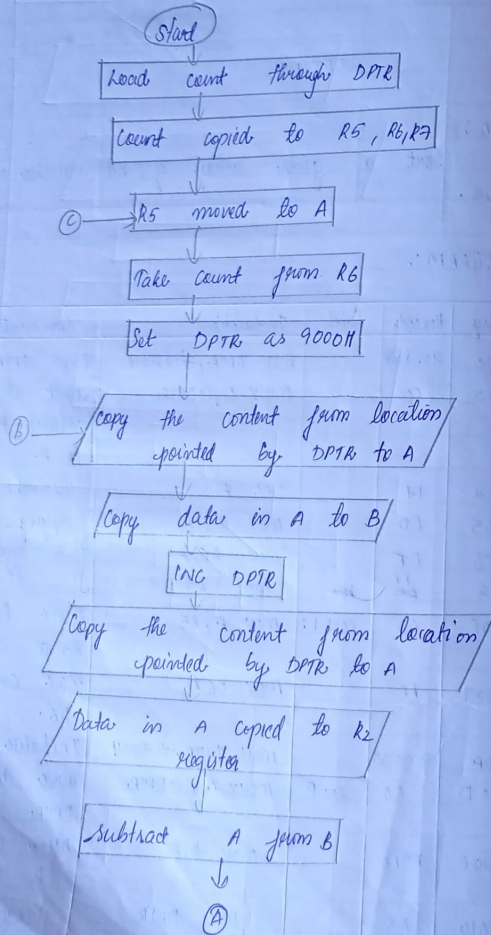 Start
Load count through DPTR
Count copied to R5, R6, R7
C
R5 moved to A
Take count from R6
Set DPTR as 9000H
B
Copy the content from location
pointed by DPTR to A
Copy data in A to B
INC DPTR
Copy the content from location
pointed by DPTR to A
Data in A copied to R2
register
Subtract A from B
A